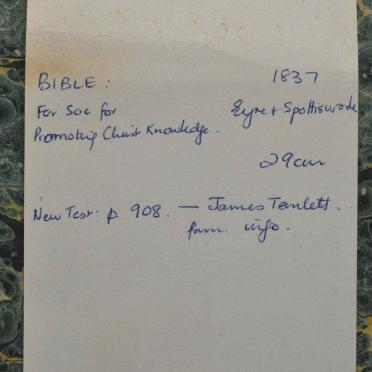 BIBLE : 1837
For Soc for Eyre + Spottiswode
Promoting Christ Knowledge.
29cm
New Test: p 908. — James
fam. info.